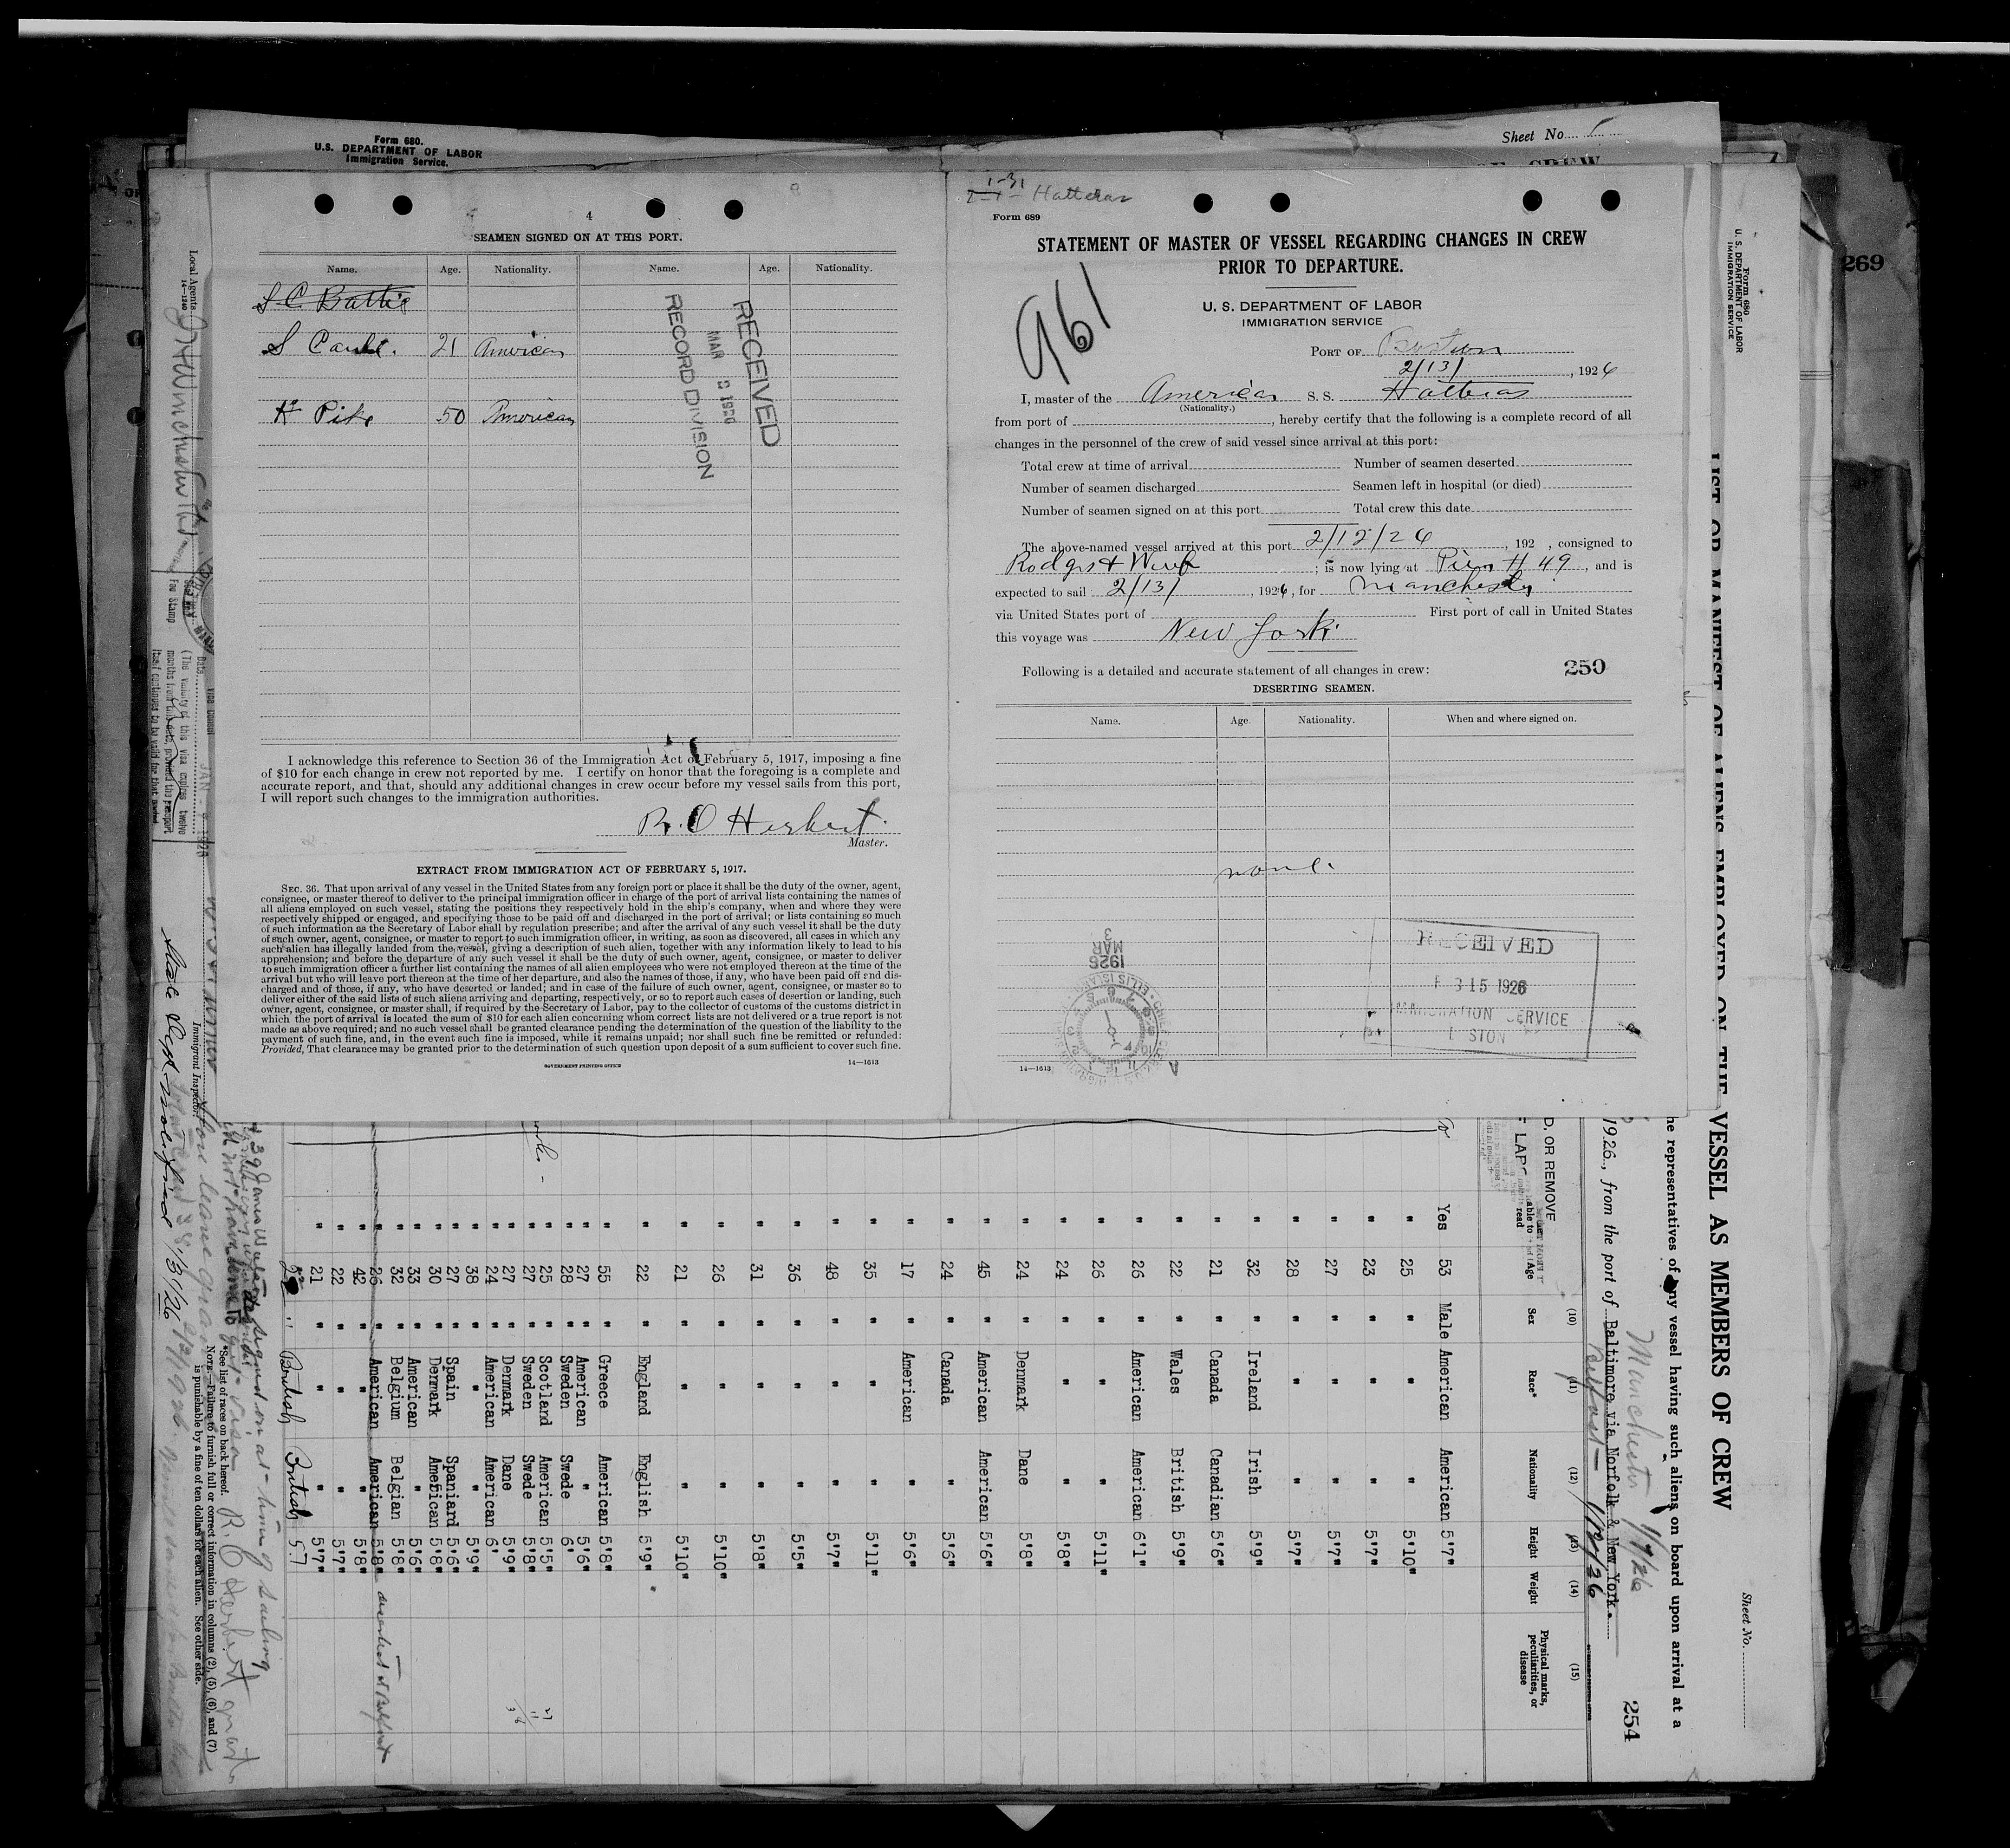 Form 680.
U.S. DEPARTMENT OF LABOR
Immigration Service.
Sheet No.
4
SEAMEN SIGNED ON AT THIS PORT.
Name. Age. Nationality. Name. Age. Nationality.
S C Battie
S 21 American
H Pike 50 American
RECEIVED
MAR
RECORD DIVISION
I acknowledge this reference to Section 36 of the Immigration Act of February 5, 1917, imposing a fine
of $10 for each change in crew not reported by me. I certify on honor that the foregoing is a complete and
accurate report, and that, should any additional changes in crew occur before my vessel sails from this port,
I will report such changes to the immigration authorities.
R. O Herbert.
Master.
EXTRACT FROM IMMIGRATION ACT OF FEBRUARY 5, 1917.
SEC. 36. That upon arrival of any vessel in the United States from any foreign port or place it shall be the duty of the owner, agent,
consignee, or master thereof to deliver to the principal immigration officer in charge of the port of arrival lists containing the names of
all aliens employed on such vessel, stating the positions they respectively hold in the ship's company, when and where they were
respectively shipped or engaged, and specifying those to be paid off and discharged in the port of arrival; or lists containing so much
of such information as the Secretary of Labor shall by regulation prescribe; and after the arrival of any such vessel it shall be the duty
of such owner, agent, consignee, or master to report to such immigration officer, in writing, as soon as discovered, all cases in which any
such alien has illegally landed from the vessel, giving a description of such alien, together with any information likely to lead to his
apprehension; and before the departure of any such vessel it shall be the duty of such owner, agent, consignee, or master to deliver
to such immigration officer a further list containing the names of all alien employees who were not employed thereon at the time of the
arrival but who will leave port thereon at the time of her departure, and also the names of those, if any, who have been paid off and dis-
charged and of those, if any, who have deserted or landed; and in case of the failure of such owner, agent, consignee, or master so to
deliver either of the said lists of such aliens arriving and departing, respectively, or so to report such cases of desertion or landing, such
owner, agent, consignee, or master, shall, if required by the Secretary of Labor, pay to the collector of customs of the customs district in
which the port of arrival is located the sum of $10 for each alien concerning whom correct lists are not delivered or a true report is not
made as above required; and no such vessel shall be granted clearance pending the determination of the question of the liability to the
payment of such fine, and, in the event such fine is imposed, while it remains unpaid; nor shall such fine be remitted or refunded:
Provided, That clearance may be granted prior to the determination of such question upon deposit of a sum sufficient to cover such fine.
14—1613
GOVERNMENT PRINTING OFFICE
Hatteras
Form 689
STATEMENT OF MASTER OF VESSEL REGARDING CHANGES IN CREW
PRIOR TO DEPARTURE.
961
U. S. DEPARTMENT OF LABOR
IMMIGRATION SERVICE
PORT OF Boston
2/13/, 1926
I, master of the American S. S. Hatteras
(Nationality.)
from port of , hereby certify that the following is a complete record of all
changes in the personnel of the crew of said vessel since arrival at this port:
Total crew at time of arrival Number of seamen deserted
Number of seamen discharged Seamen left in hospital (or died)
Number of seamen signed on at this port Total crew this date
The above-named vessel arrived at this port 2/12/26, 192 , consigned to
Rodgers & Webb ; is now lying at Pier # 49, and is
expected to sail 2/13/, 1926, for Manchester
via United States port of First port of call in United States
this voyage was New York
Following is a detailed and accurate statement of all changes in crew: 250
DESERTING SEAMEN.
Name. Age. Nationality. When and where signed on.
none
1926
MAR
3
RECEIVED
15 1926
IMMIGRATION SERVICE
14—1613
269
Form 680
U. S. DEPARTMENT OF LABOR
IMMIGRATION SERVICE
LIST OR MANIFEST OF ALIENS EMPLOYED ON THE VESSEL AS MEMBERS OF CREW
Sheet No.
he representatives of any vessel having such aliens on board upon arrival at a
Manchester 1/9/26
1926., from the port of Baltimore via Norfolk & New York.
Belfast 1/12/26
254
D, OR REMOVE
Age Sex Race* Nationality Height Weight Physical marks, peculiarities, or disease
(10) (11) (12) (13) (14) (15)
Yes 53 Male American American 5'7"
" 25 " " " 5'10"
" 23 " " " 5'7"
" 27 " " " 5'7"
" 28 " " " 5'7"
" 32 " Ireland Irish 5'9"
" 21 " Canada Canadian 5'6"
" 22 " Wales British 5'9"
" 26 " American American 6'1"
" 26 " " " 5'11"
" 24 " " " 5'8"
" 24 " Denmark Dane 5'8"
" 45 " American American 5'6"
" 24 " Canada " 5'6"
" 17 " American " 5'6"
" 35 " " " 5'11"
" 48 " " " 5'7"
" 36 " " " 5'5"
" 31 " " " 5'8"
" 26 " " " 5'10"
" 21 " " " 5'10"
" 22 " England English 5'9"
" 55 " Greece American 5'8"
" 27 " American " 5'6"
" 28 " Sweden Swede 6'
" 25 " Scotland American 5'5"
" 27 " Sweden Swede 5'8"
" 27 " Denmark Dane 5'9"
" 24 " American American 6'
" 38 " " " 5'9"
" 27 " Spain Spaniard 5'6"
" 30 " Denmark American 5'8"
" 33 " American " 5'6"
" 32 " Belgium Belgian 5'8"
" 26 " American American 5'8" deserted at Belfast
" 42 " " " 5'8"
" 22 " " " 5'7"
" 21 " " " 5'7"
" British British 5.7
signed on at time of sailing
R. O Herbert
*See list of races on back hereof.
NOTE.—Failure to furnish full or correct information in columns (2), (5), (6), and (7)
is punishable by a fine of ten dollars for each alien. See other side.
Immigrant Inspector.
State Dept. notified 1/31/26
Local Agents
14—1240
Fee Stamp
(The validity of this visa expires twelve
months from this date, provided the passport
itself continues to be valid for that period